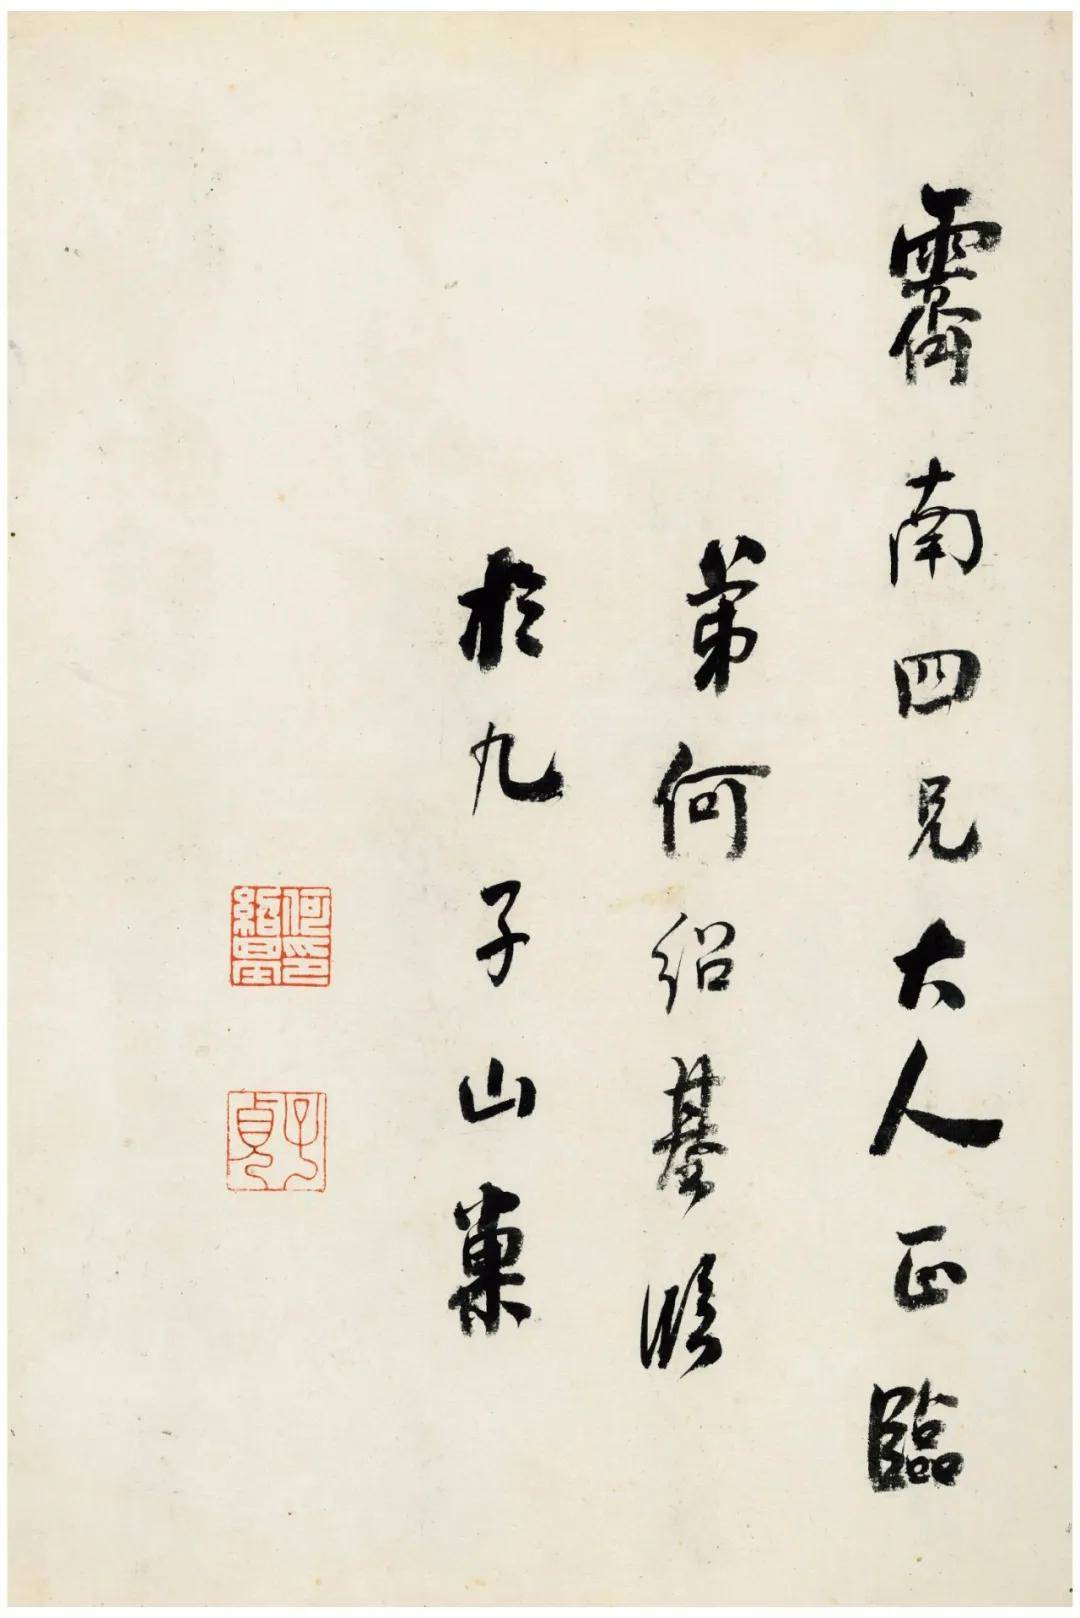 霽南四兄大人正臨
弟何紹基臨
於九子山巢
何紹基印
子貞